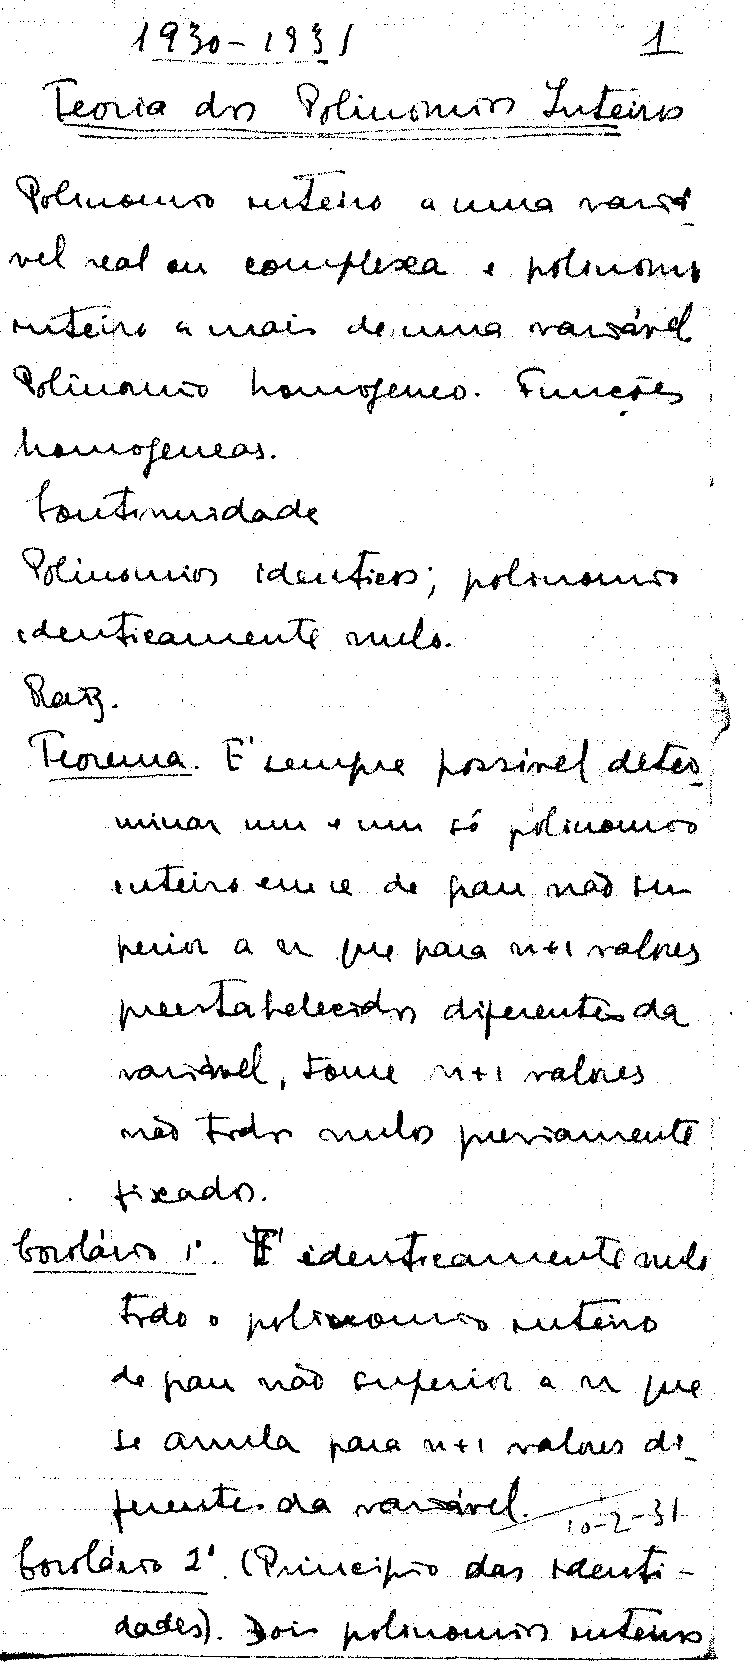 1930-1931 1
Teoria dos Polinomios Inteiros
Polinomio inteiro a uma variá-
vel real ou complexa e polinomio
inteiro a mais de uma variável
Polinomio homogeneo. Funções
homogeneas.
Continuidade
Polinomios identicos; polinomio
identicamente nulo.
Raiz.
Teorema. E' sempre possivel deter-
minar um e um só polinomio
inteiro em x de grau não su-
perior a n que para n+1 valores
preestabelecidos diferentes da
variável, tome n+1 valores
não todos nulos previamente
fixados.
Corolário 1º. E' identicamente nulo
todo o polinomio inteiro
de grau não superior a n que
se anula para n+1 valores di-
ferentes da variável. 10-2-31
Corolário 2º. (Principio das identi-
dades). Dois polinomios inteiros